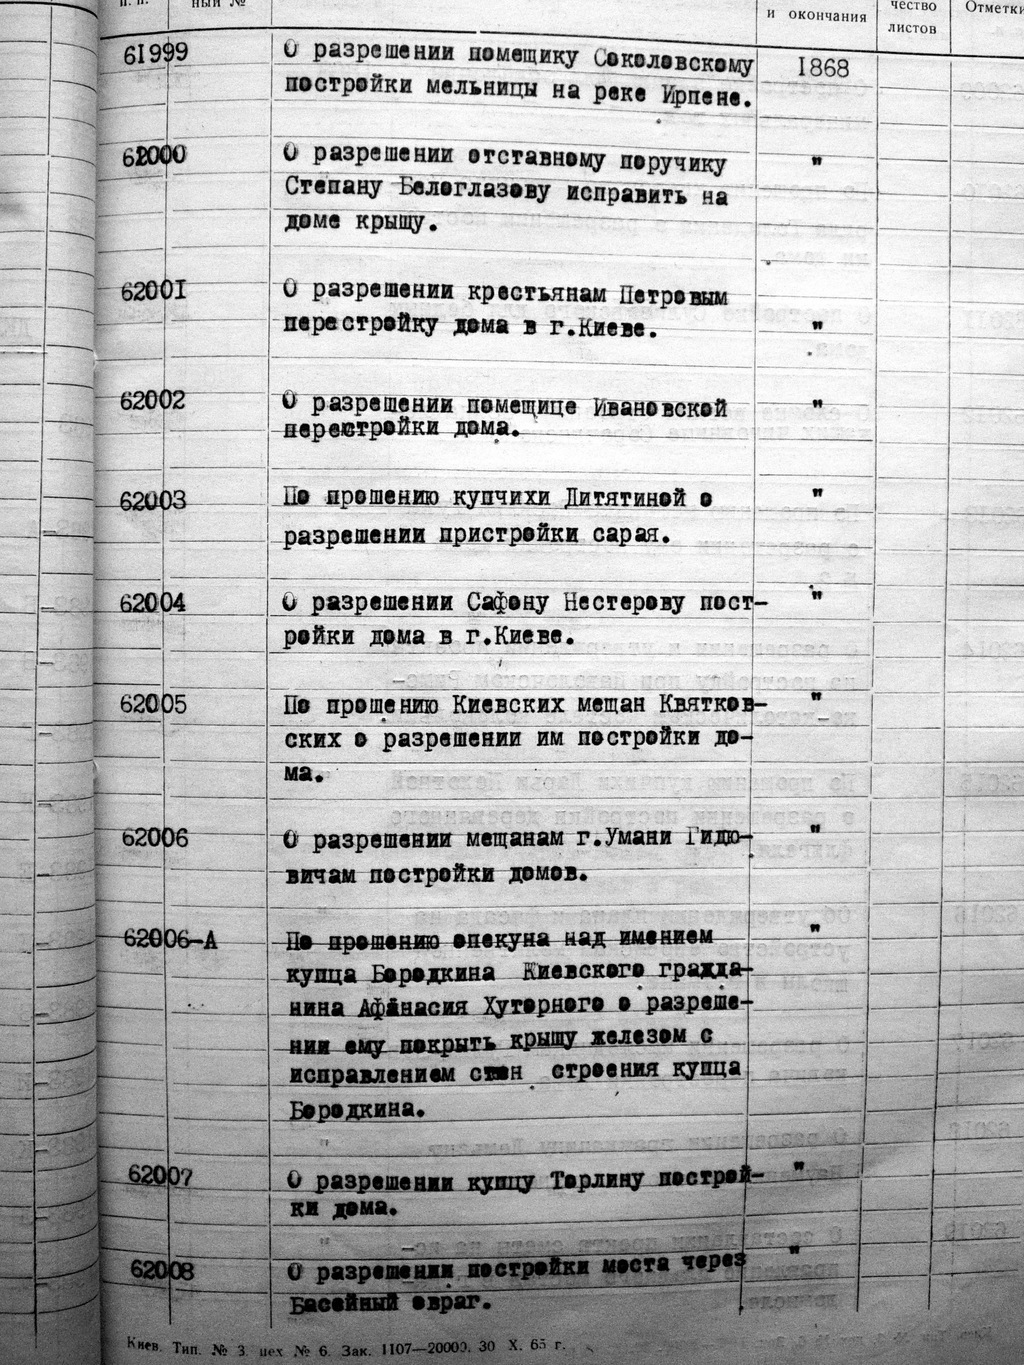 п. п.
ный №
и окончания
чество
листов
Отметки
61999 О разрешении помещику Соколовскому 1868
постройки мельницы на реке Ирпене.
62000 О разрешении отставному поручику "
Степану Белоглазову исправить на
доме крышу.
62001 О разрешении крестьянам Петровым
перестройку дома в г.Киеве. "
62002 О разрешении помещице Ивановской "
перестройки дома.
62003 По прошению купчихи Дитятиной о "
разрешении пристройки сарая.
62004 О разрешении Сафону Нестерову пост- "
ройки дома в г.Киеве.
62005 По прошению Киевских мещан Квятков- "
ских о разрешении им постройки до-
ма.
62006 О разрешении мещанам г.Умани Гидю- "
вичам постройки домов.
62006-А По прошению опекуна над имением "
купца Бородкина Киевского гражда-
нина Афанасия Хуторного о разреше-
нии ему покрыть крышу железом с
исправлением стен строения купца
Бородкина.
62007 О разрешении купцу Торлину построй- "
ки дома.
62008 О разрешении постройки моста через "
Басейный овраг.
Киев. Тип. № 3. цех № 6. Зак. 1107—20000. 30 X. 65 г.